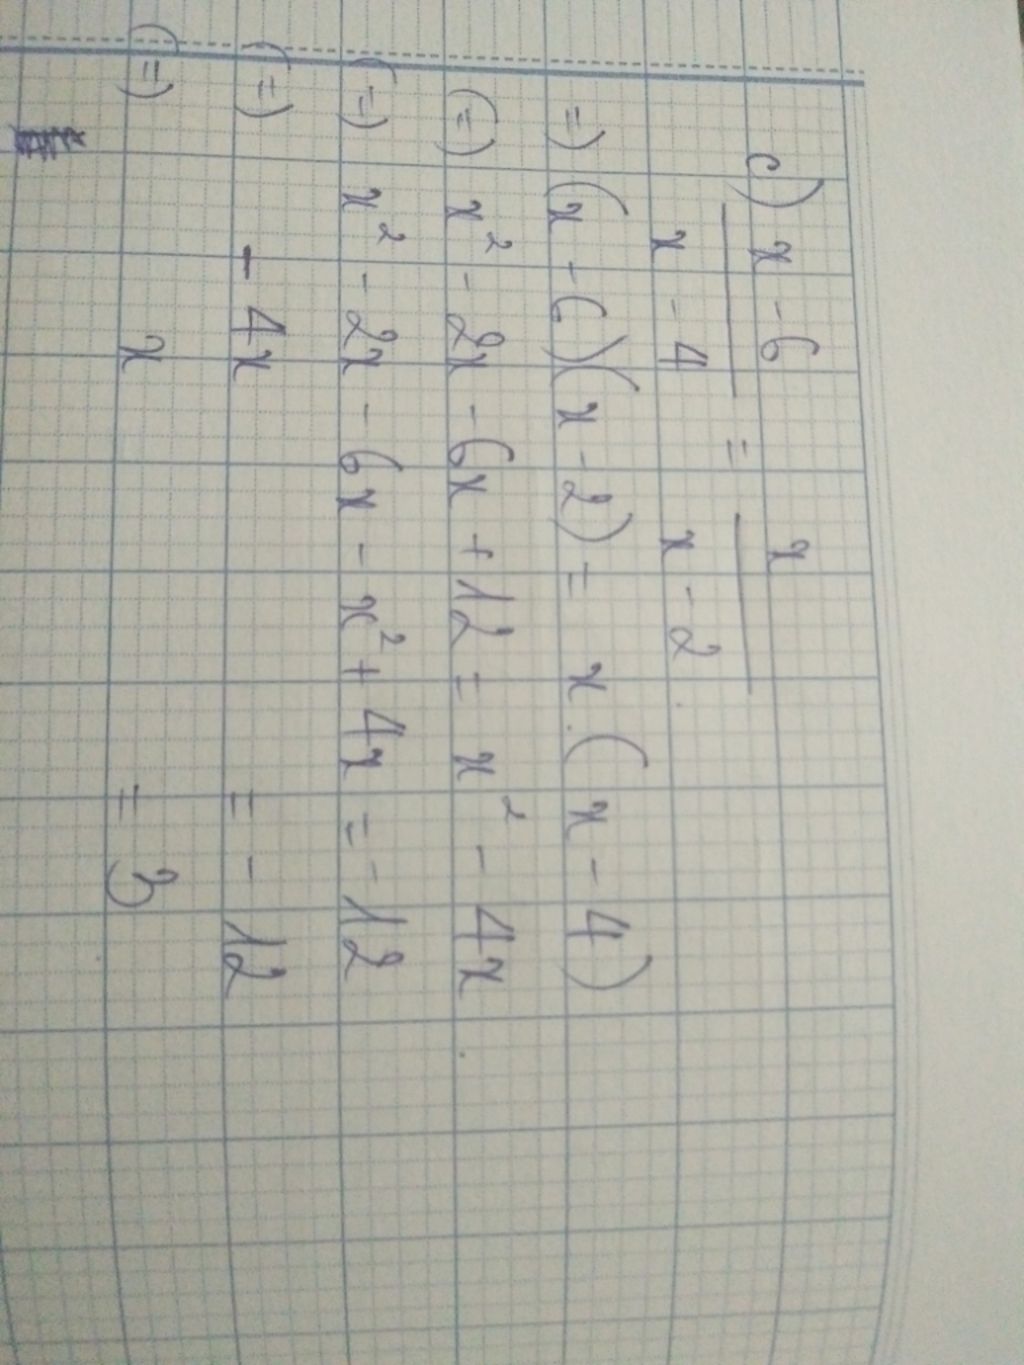 c) x - 6 / x - 4 = x / x - 2
=> (x - 6)(x - 2) = x.(x - 4)
(=) x² - 2x - 6x + 12 = x² - 4x
(=) x² - 2x - 6x - x² + 4x = -12
(=) - 4x = - 12
(=) x = 3